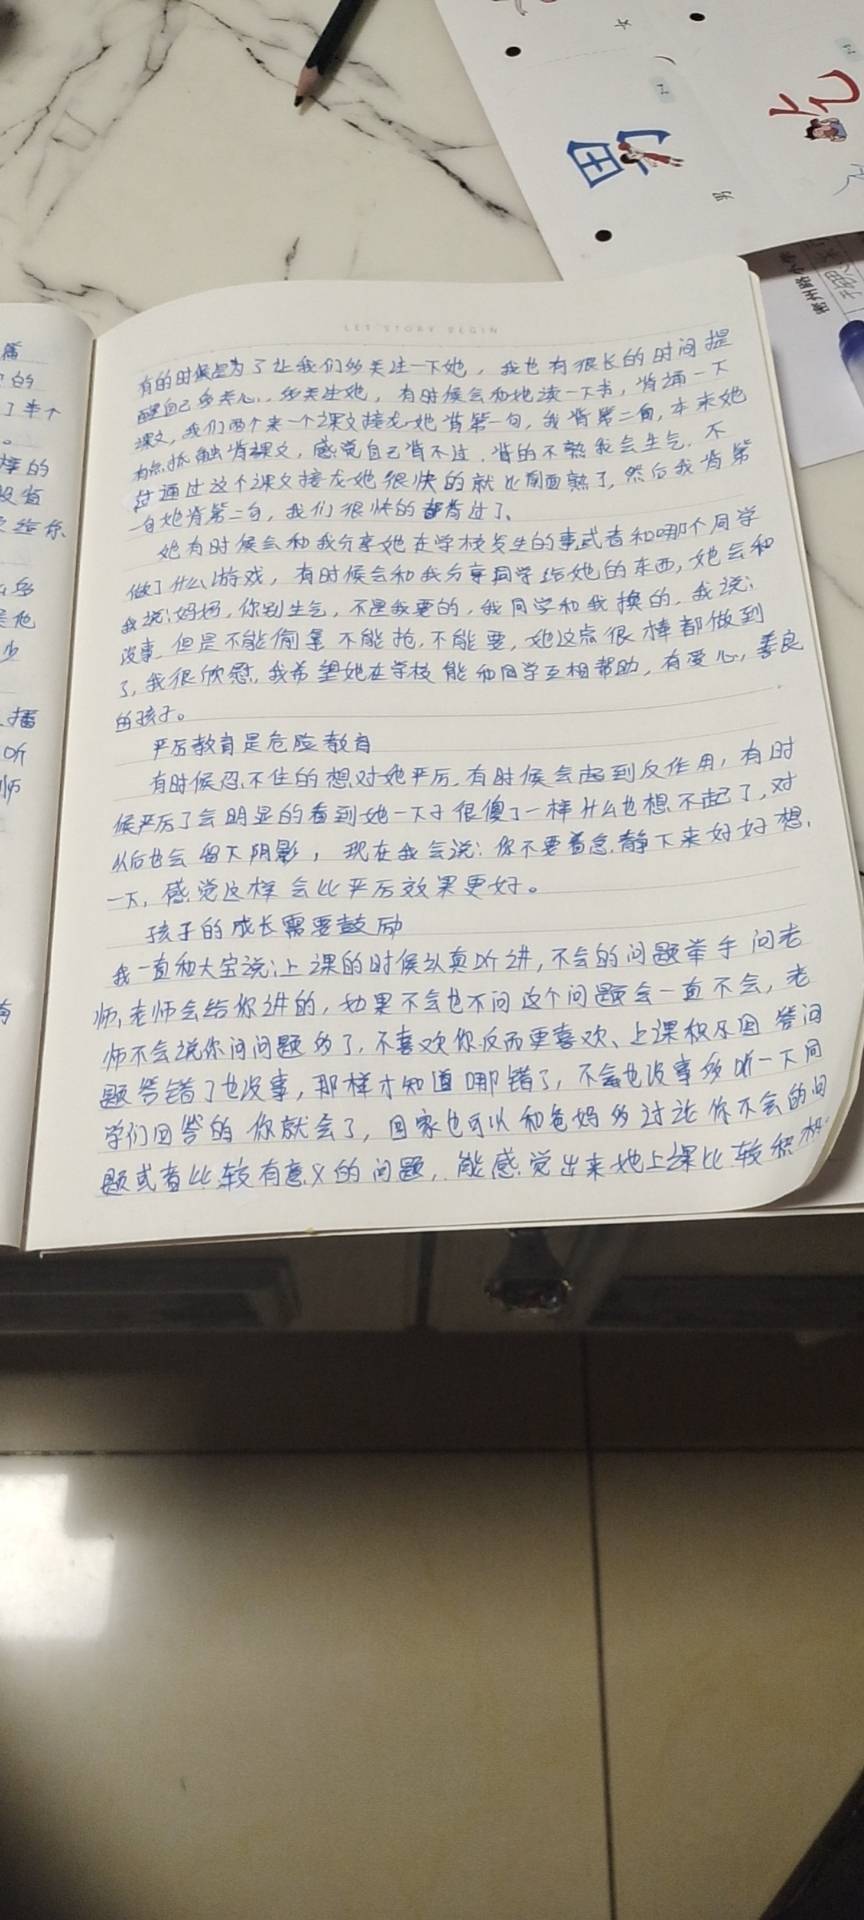 LET'STORY BEGIN
有的时候是为了让我们多关注一下她，我也有很长的时间提
醒自己多关心、多关注她，有时候会和她读一下书，背诵一下
课文，我们两个来一个课文接龙她背第一句，我背第二句，本来她
有点抵触背课文，感觉自己背不过，背的不熟我会生气，不
过通过这个课文接龙她很快的就比前面熟了，然后我背第
一句她背第二句，我们很快的都背过了。
她有时候会和我分享她在学校发生的事或者和哪个同学
做了什么游戏，有时候会和我分享同学给她的东西，她会和
我说：妈妈，你别生气，不是我要的，我同学和我换的，我说：
没事，但是不能偷拿 不能抢，不能要，她这点很棒都做到
了，我很欣慰，我希望她在学校能和同学互相帮助，有爱心，善良
的孩子。
严厉教育是危险教育
有时候忍不住的想对她严厉，有时候会起到反作用，有时
候严厉了会明显的看到她一下子很傻了一样什么也想不起了，对
以后也会留下阴影，现在我会说：你不要着急，静下来好好想
一下，感觉这样会比严厉效果更好。
孩子的成长需要鼓励
我一直和大宝说：上课的时候认真听讲，不会的问题举手问老
师，老师会给你讲的，如果不会也不问这个问题会一直不会，老
师不会说你问问题多了，不喜欢你反而更喜欢、上课积极回答问
题答错了也没事，那样才知道哪错了，不会也没事多听一下同
学们回答的你就会了，回家也可以和爸妈多讨论你不会的问
题或者比较有意义的问题，能感觉出来她上课比较积极
男
衢州路小学